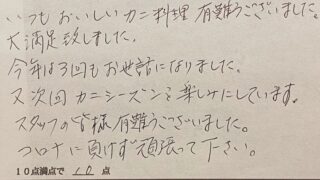 いつもおいしいカニ料理有難うございました。
大満足致しました。
今年は3回もお世話になりました。
又次回カニシーズンを楽しみにしています。
スタッフの皆様有難うございました。
コロナに負けず頑張って下さい。
10点満点で 10 点